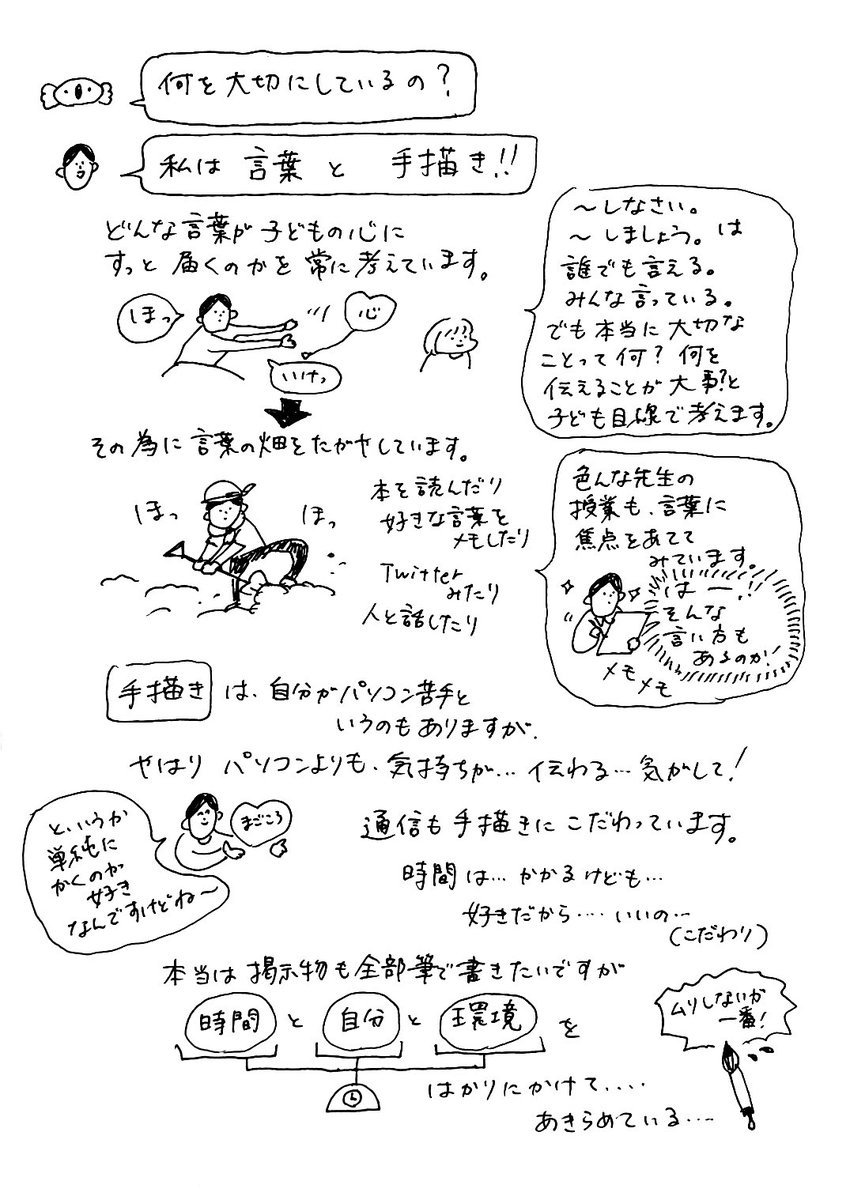 何を大切にしているの？
私は 言葉 と 手描き!!
どんな言葉が子どもの心に
すっと届くのかを常に考えています。
ほっ
心
いけっ
〜しなさい。
〜しましょう。は
誰でも言える。
みんな言っている。
でも本当に大切な
ことって何？何を
伝えることが大事?と
子ども目線で考えます。
その為に言葉の畑をたがやしています。
ほっ
ほっ
本を読んだり
好きな言葉を
メモしたり
Twitter
みたり
人と話したり
色んな先生の
授業も、言葉に
焦点をあてて
みています。
はー!!
そんな
言い方も
あるのか!
メモメモ
手描き は、自分がパソコン苦手と
いうのもありますが、
やはり パソコンよりも、気持ちが…伝わる…気がして!
というか
単純に
かくのが
好き
なんですけどね〜
まごころ
通信も手描きにこだわっています。
時間は…かかるけども…
好きだから‥‥いいの…
(こだわり)
本当は掲示物も全部筆で書きたいですが
時間 と 自分 と 環境 を
はかりにかけて‥‥
あきらめている…
ムリしないが
一番!